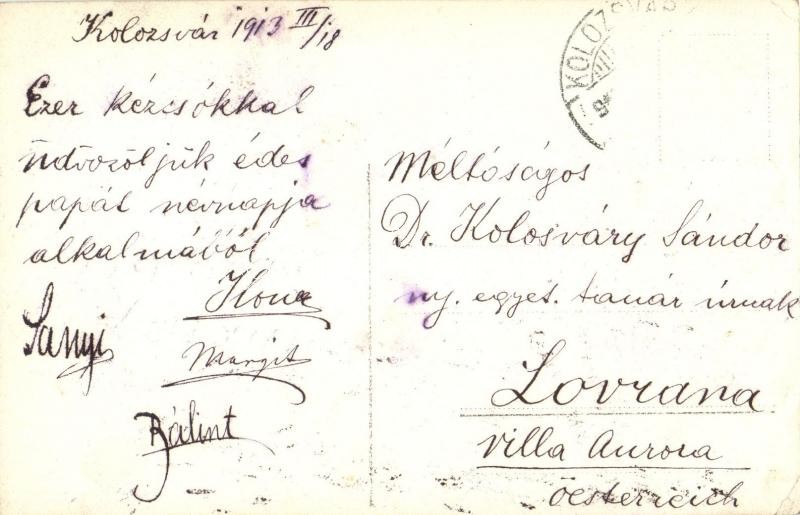 Kolozsvár 1913 III/18
Ezer kézcsókkal
üdvözöljük édes
papát névnapja
alkalmából
Ilona
Sanyi
Margit
Bálint
KOLOZSVÁR
Méltóságos
Dr. Kolosváry Sándor
ny. egyet. tanár úrnak
Lovrana
Villa Aurora
Oesterreich